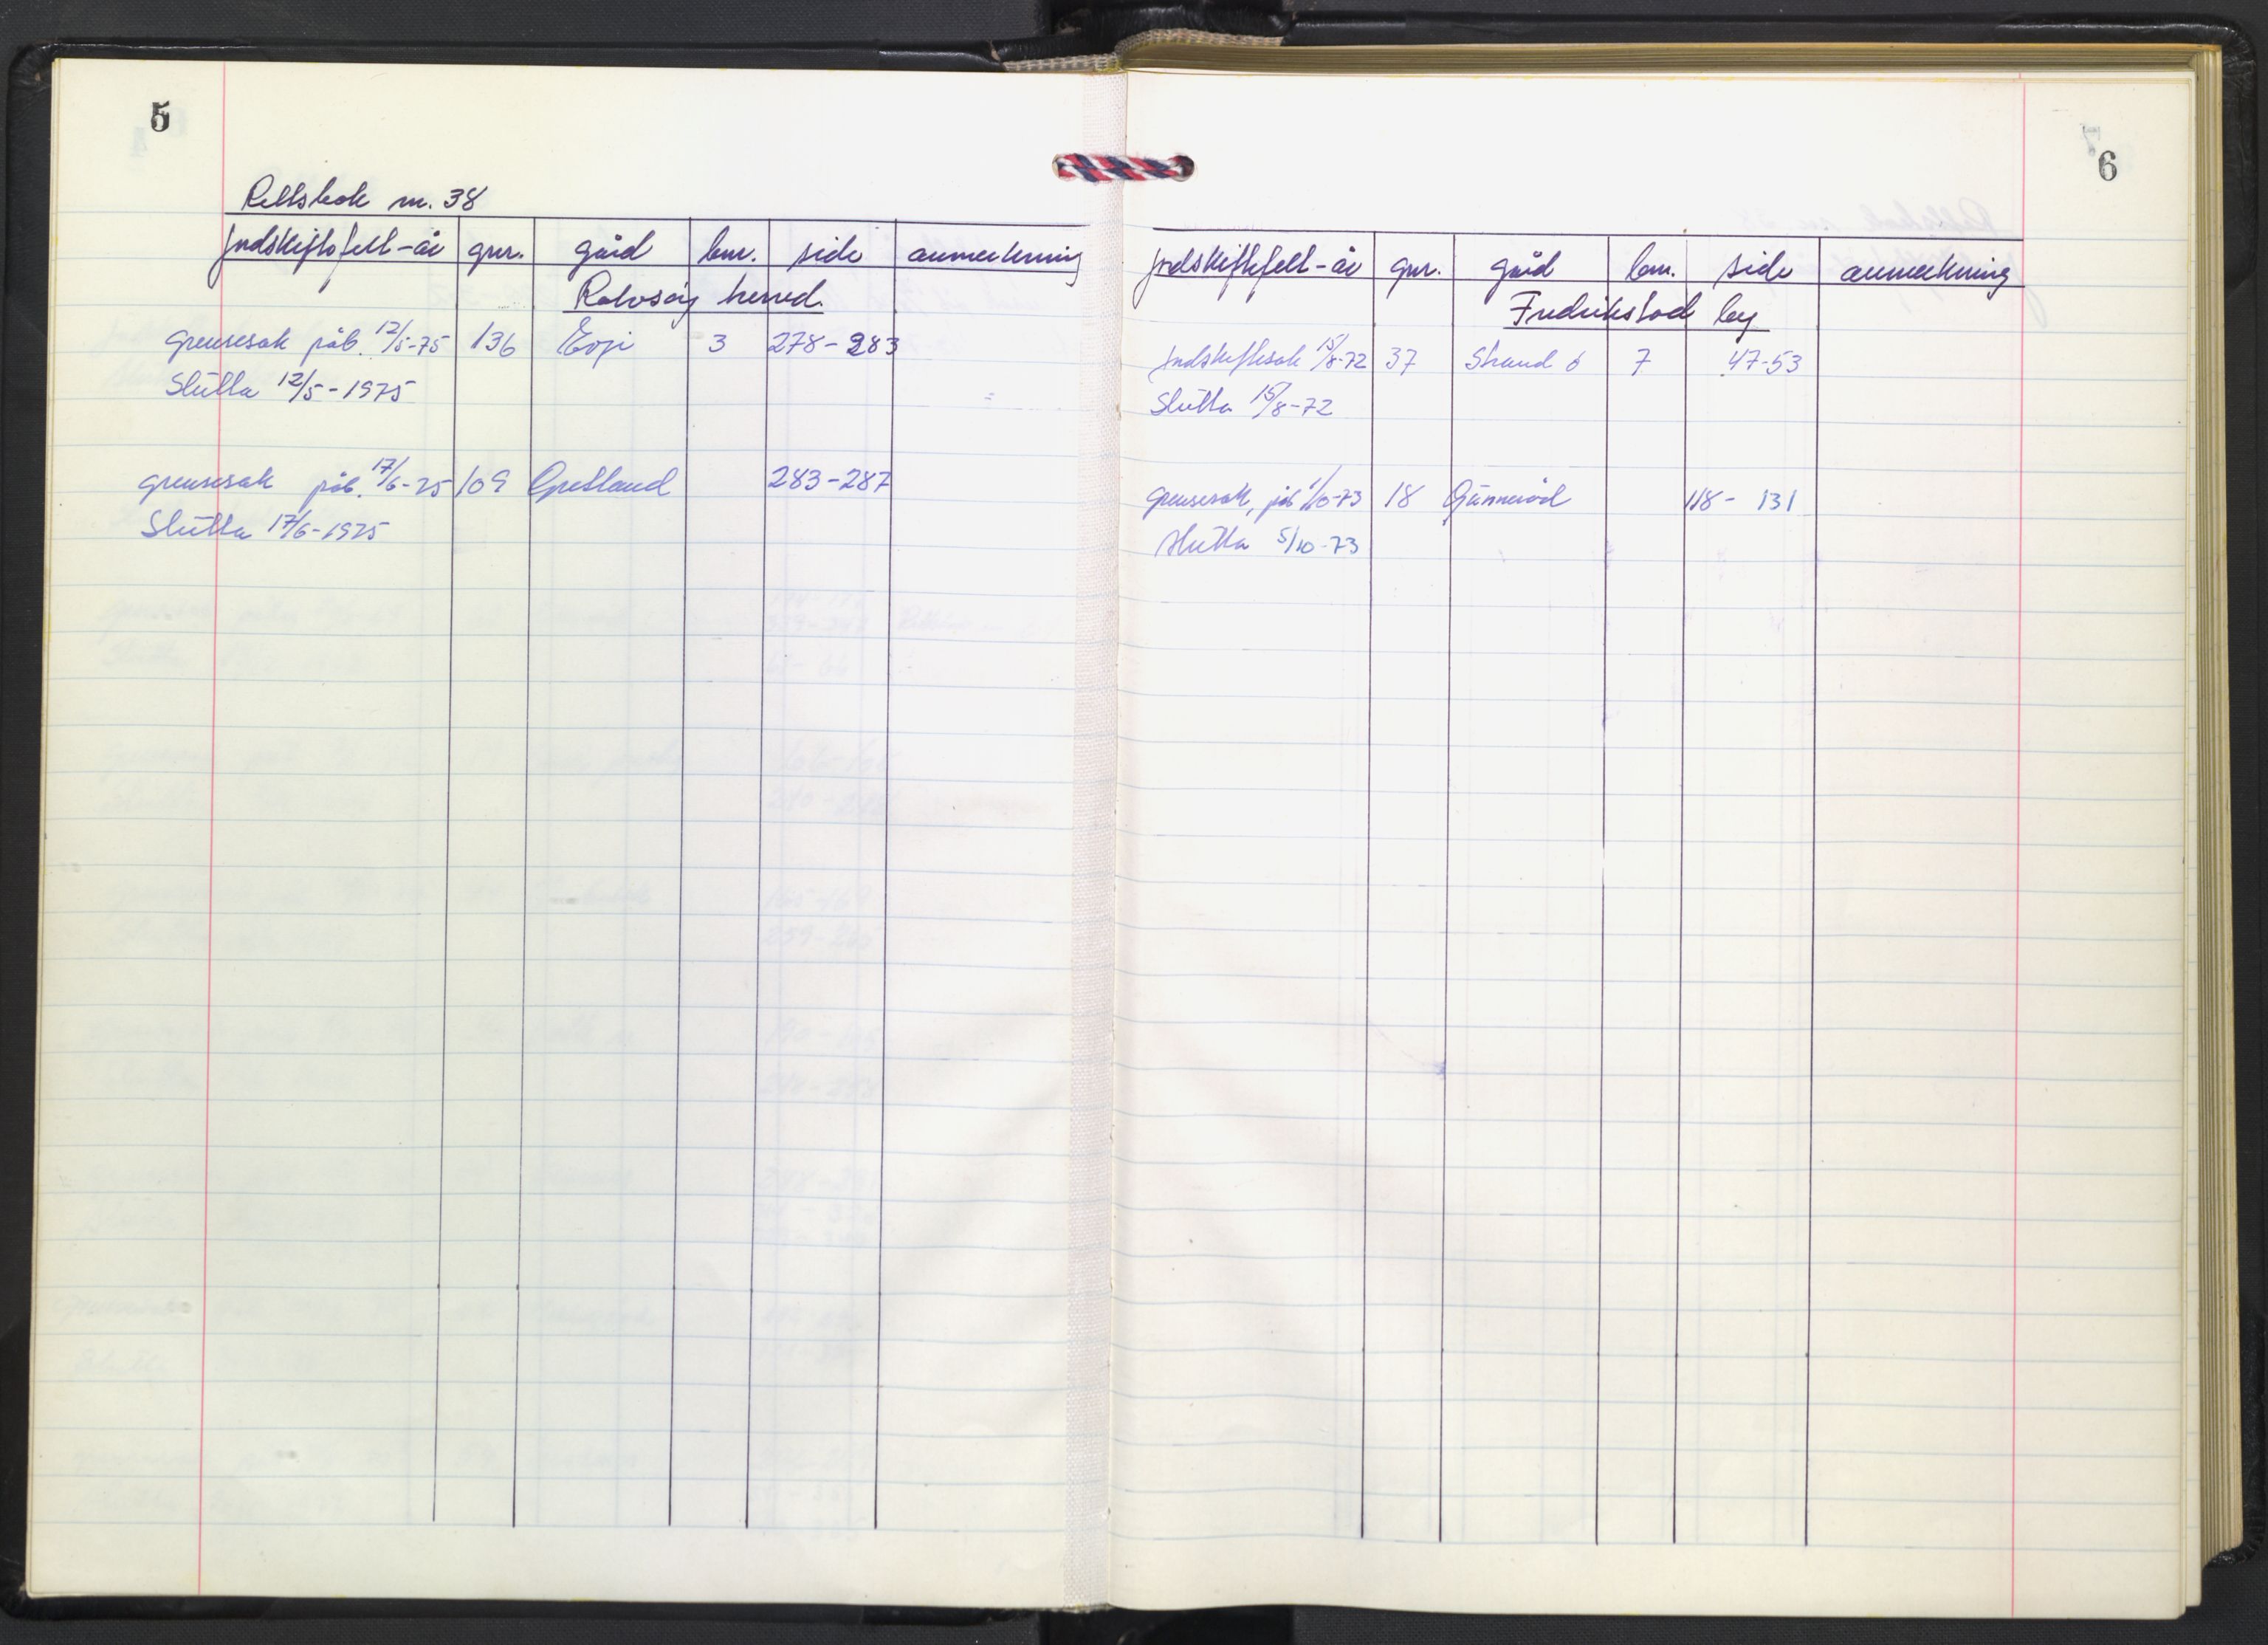 5
Rettsbok nr. 38
Jordskiftefelt-år gnr. gård bnr. side anmerkning
Rolvsøy herred.
grensesak påb. 12/5-75 136 Evje 3 278-283
Slutta 12/5-1975
grensesak påb. 17/6-75 109 Opstad 283-287
Slutta 17/6-1975
6
Jordskiftefelt-år gnr. gård bnr. side anmerkning
Fredrikstad by
Jordskiftesak 15/8-72 37 Strand ø 7 47-53
Slutta 15/8-72
grensesak, påb 1/10-73 18 Gunnerød 118-131
slutta 5/10-73